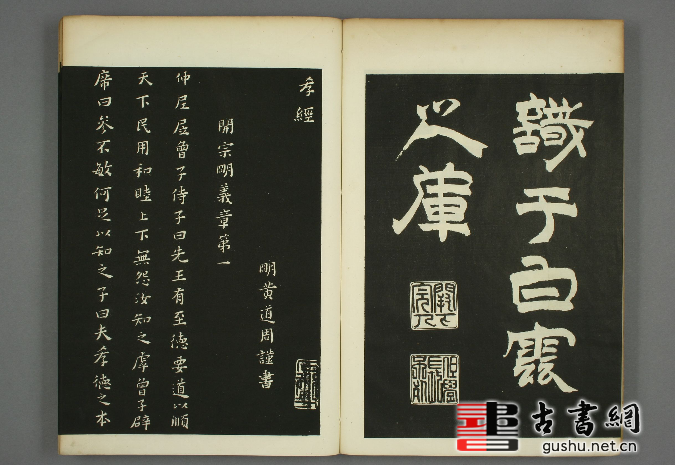 識于白雲
之庫
孝經
明黃道周謹書
開宗明義章第一
仲尼凥曾子侍子曰先王有至德要道以順
天下民用和睦上下無怨汝知之虖曾子辟
席曰參不敏何足以知之子曰夫孝德之本
古書網
gushu.net.cn